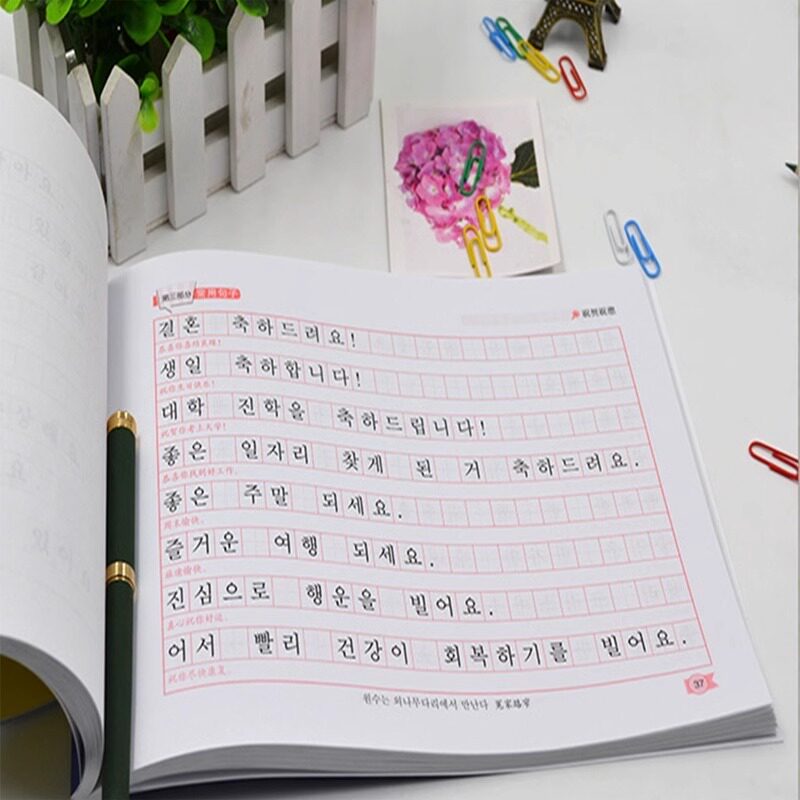 第三部分 常用句子
祝贺祝愿
결혼 축하드려요!
恭喜你喜结良缘!
생일 축하합니다!
祝你生日快乐!
대학 진학을 축하드립니다!
祝贺你考上大学!
좋은 일자리 찾게 된 거 축하드려요.
恭喜你找到好工作。
좋은 주말 되세요.
周末愉快。
즐거운 여행 되세요.
旅途愉快。
진심으로 행운을 빌어요.
真心祝你好运。
어서 빨리 건강이 회복하기를 빌어요.
祝你尽快康复。
원수는 외나무다리에서 만난다 冤家路窄
37